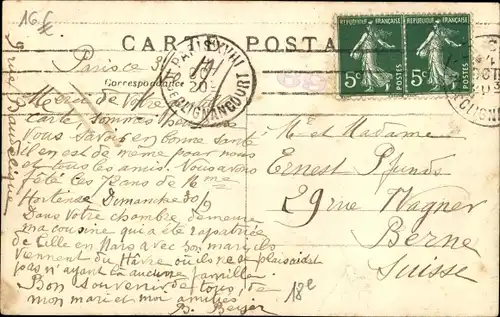 16 F
CARTE POSTALE
Correspondance
RÉPUBLIQUE FRANÇAISE
5c POSTES
RÉPUBLIQUE FRANÇAISE
5c POSTES
PARIS XVIII
R. CLIGNANCOURT
OCT
20
Paris ce
Merci de votre
carte sommes
Vous savoir en bonne santé
il en est de même pour nous
et tous les amis. Nous avons
fêté les 18 ans de Mme
Hortense Dimanche 30/9
Dans votre chambre demeure
ma cousine qui a été rapatriée
de Lille en Mars avec son mari, ils
viennent du Hâvre où ils ne se plaisaient
pas n'ayant là aucune famille.
Bon souvenir de tous, de
mon mari et moi amitiés.
B. Berger
18e
Mr et Madame
Ernest Pfunds
29 rue Wagner
Berne
Suisse